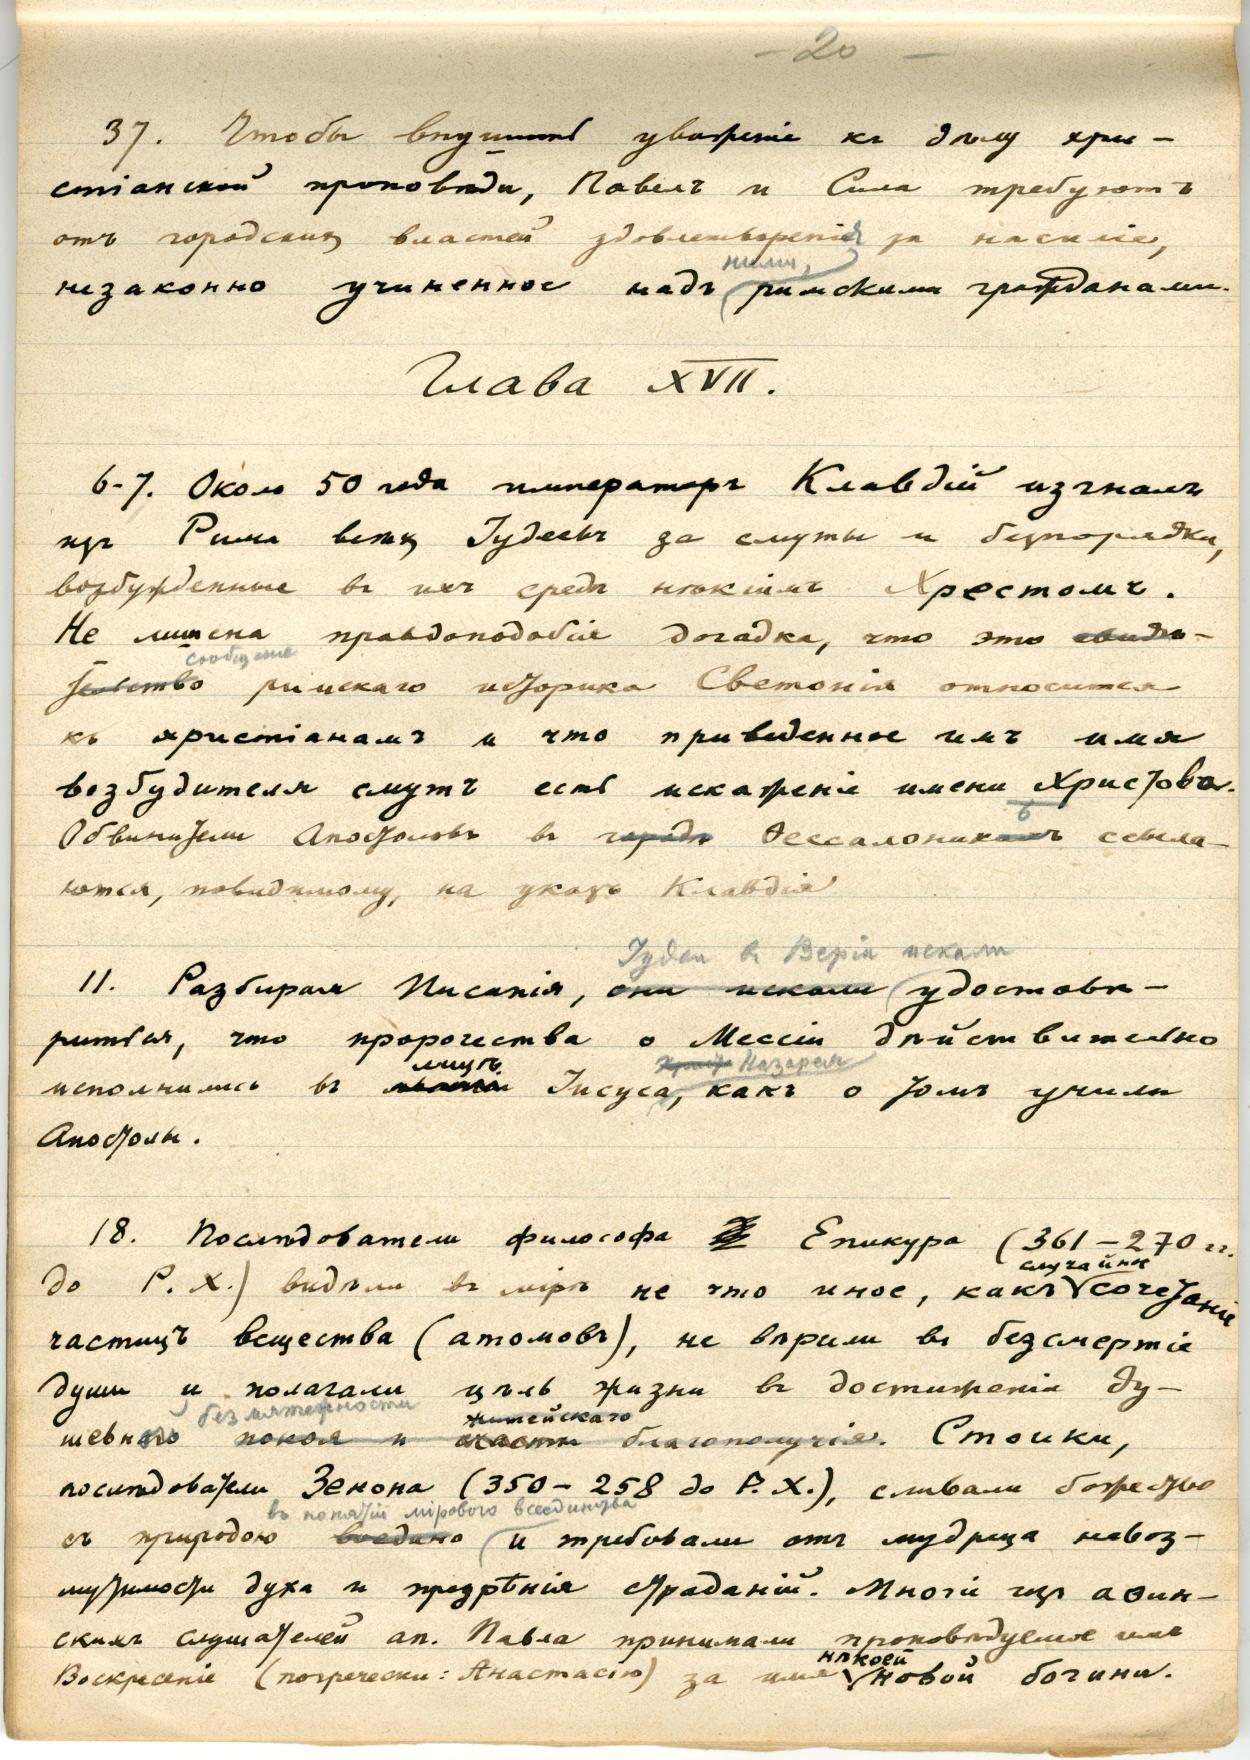 – 20 –
37. Чтобы внушить уваженіе къ дѣлу хри-
стіанской проповѣди, Павелъ и Сила требуютъ
отъ городскихъ властей удовлетворенія за насиліе,
ними,
незаконно учиненное надъ римскими гражданами.
Глава XVII.
6-7. Около 50 года императоръ Клавдій изгналъ
изъ Рима всѣхъ Іудеевъ за смуты и безпорядки,
возбужденные въ ихъ средѣ нѣкіимъ Хрестомъ.
Не лишена правдоподобія догадка, что это свидѣ-
сообщеніе
тельство римскаго историка Светонія относится
къ христіанамъ и что приведенное имъ имя
возбудителя смутъ есть искаженіе имени Христова.
Обвинители Апостоловъ въ городѣ Ѳессалоникахъ ссыла-
ются, повидимому, на указъ Клавдія
Іудеи въ Веріи искали
11. Разбирая Писанія, они искали удостовѣ-
риться, что пророчества о Мессіи дѣйствительно
лицѣ Назарея
исполнились въ Іисуса, какъ о томъ учили
Апостолы.
18. Послѣдователи философа Епикура (361–270 гг.
случайное
до Р. Х.) видѣли въ мірѣ не что иное, какъ сочетаніе
частицъ вещества (атомовъ), не вѣрили въ безсмертіе
души и полагали цѣль жизни въ достиженіи ду-
безмятежности житейскаго
шевнаго покоя и счастья благополучія. Стоики,
послѣдователи Зенона (350–258 до Р. Х.), сливали божество
въ понятіи мірового всеединства
съ природою воедино и требовали отъ мудреца невоз-
мутимости духа и презрѣнія страданій. Многіе изъ аѳин-
скихъ слушателей ап. Павла принимали проповѣдуемое имъ
нѣкоей
Воскресеніе (погречески: Анастасію) за имя новой богини.